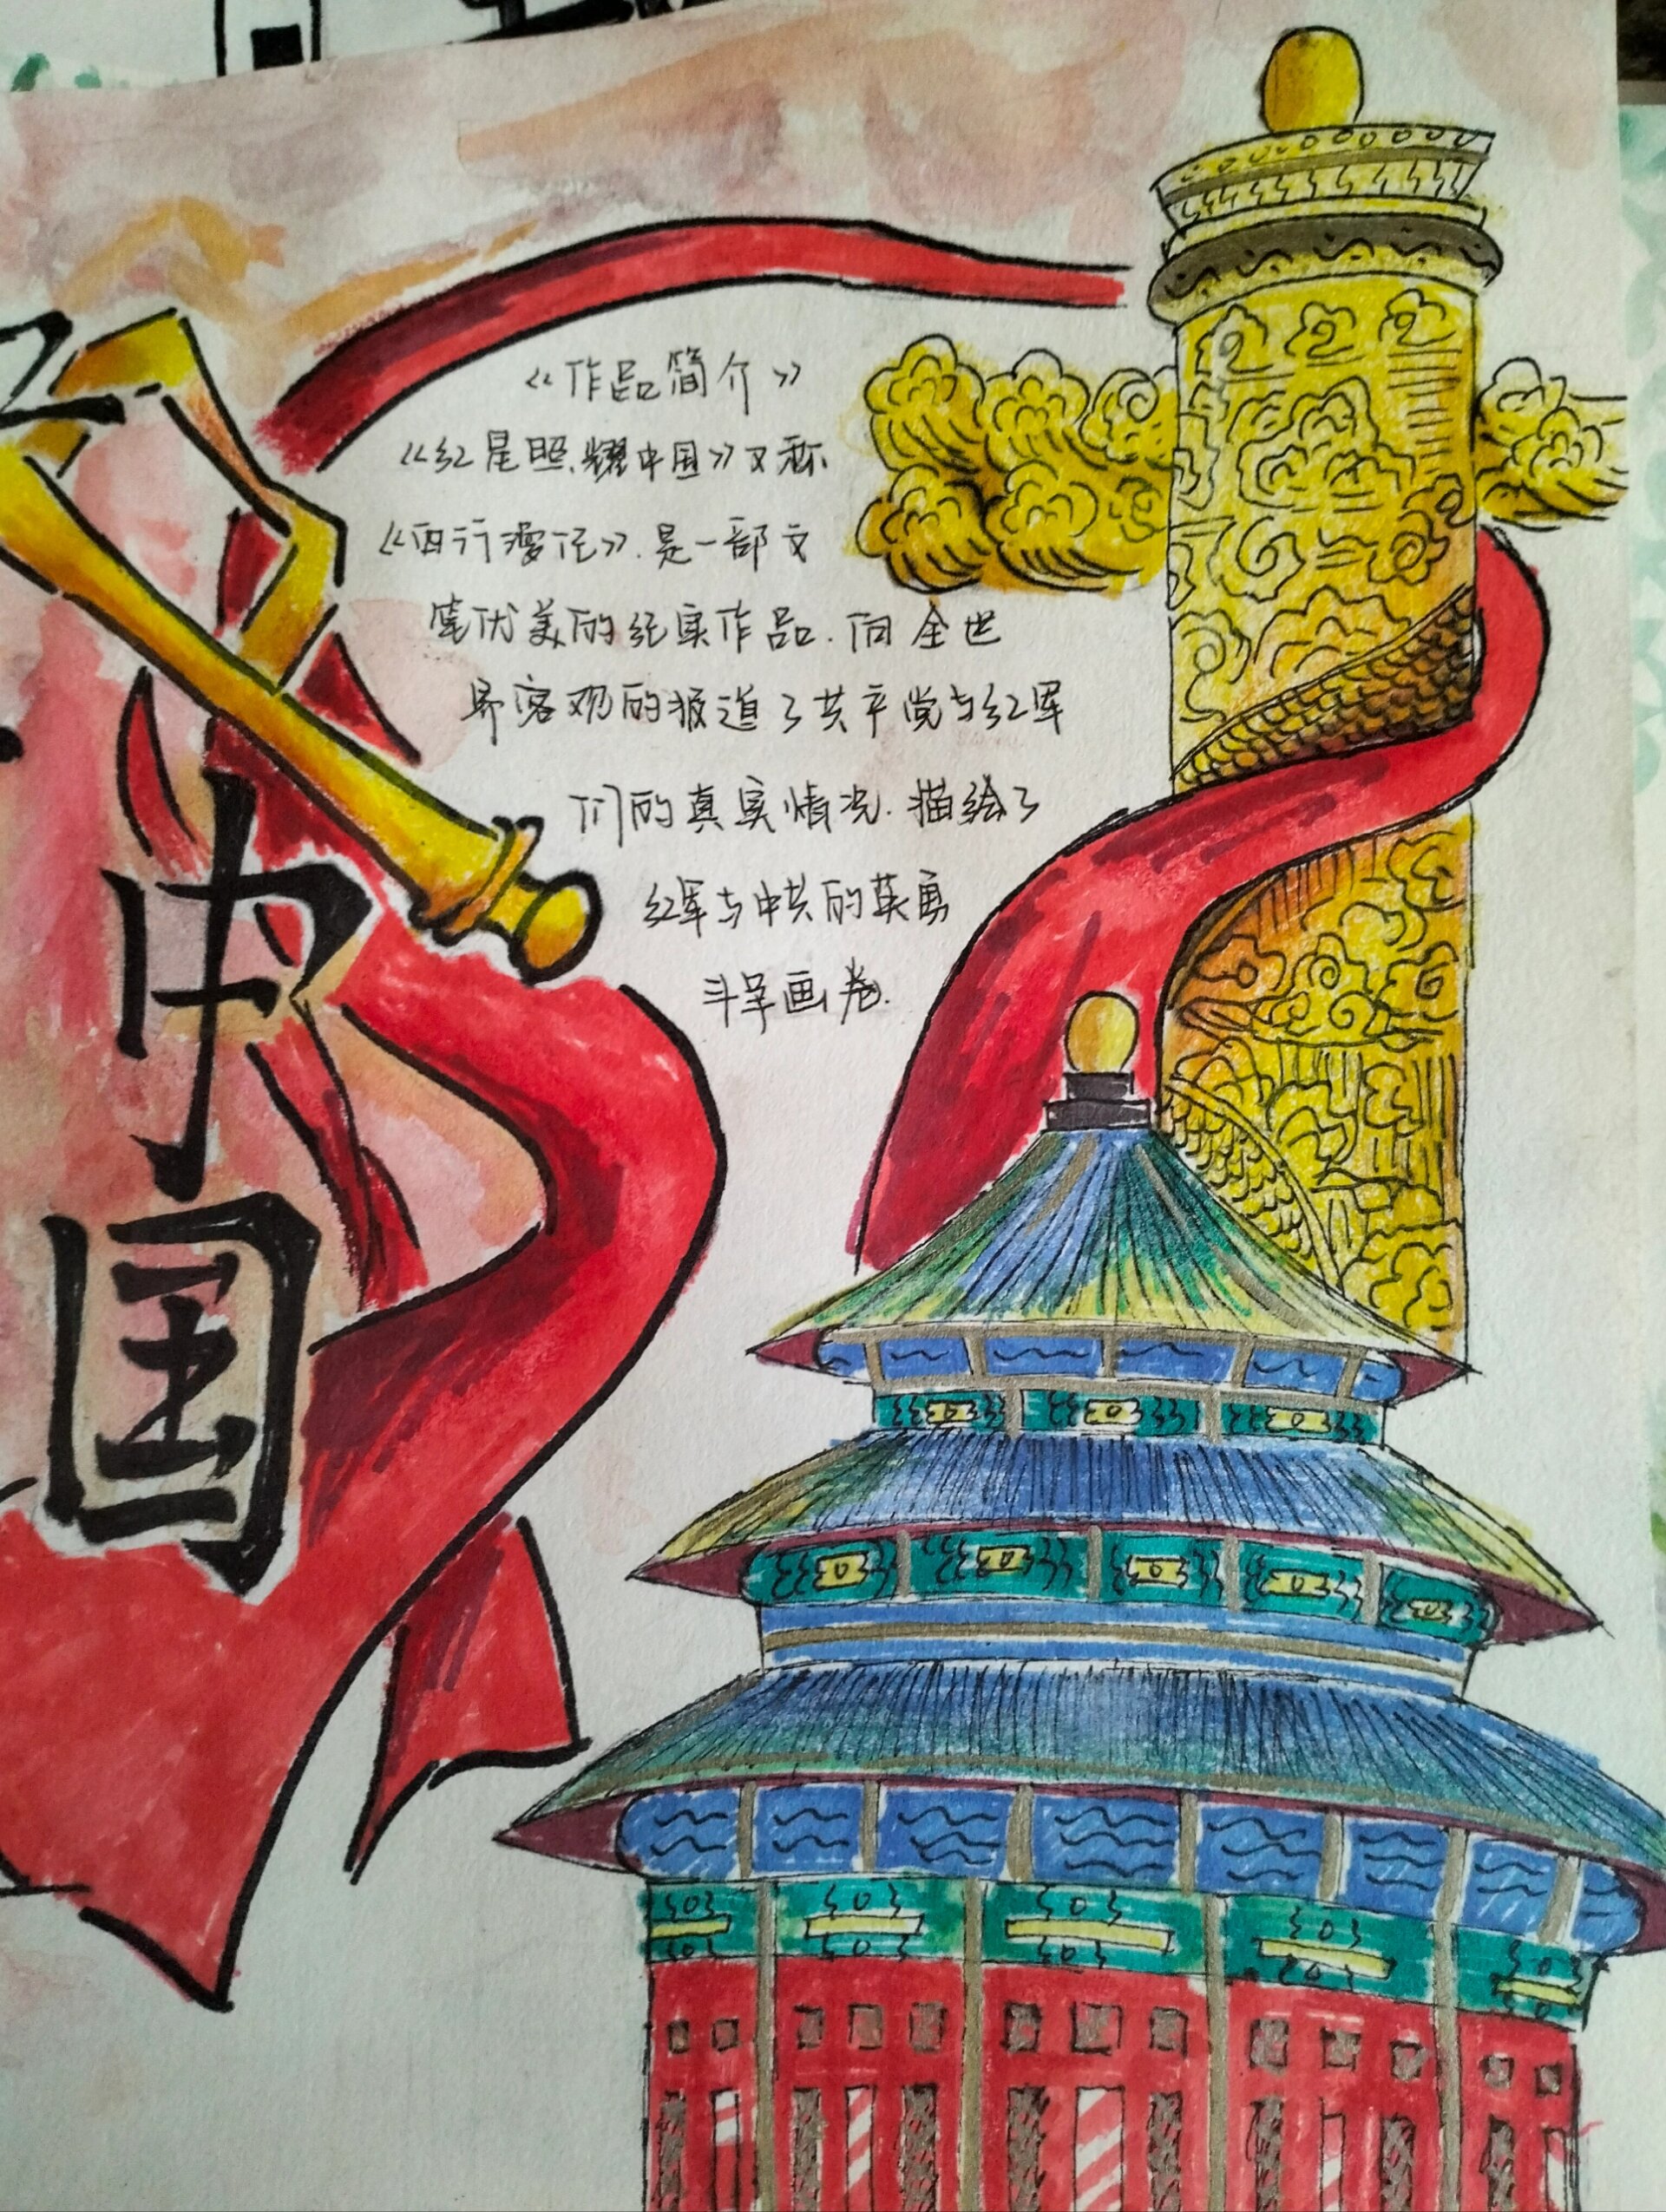 《作品简介》
《红星照耀中国》又称
《西行漫记》.是一部文
笔优美的纪实作品.向全世
界客观的报道了共产党与红军
们的真实情况.描绘了
红军与中共的英勇
斗争画卷.
中
国